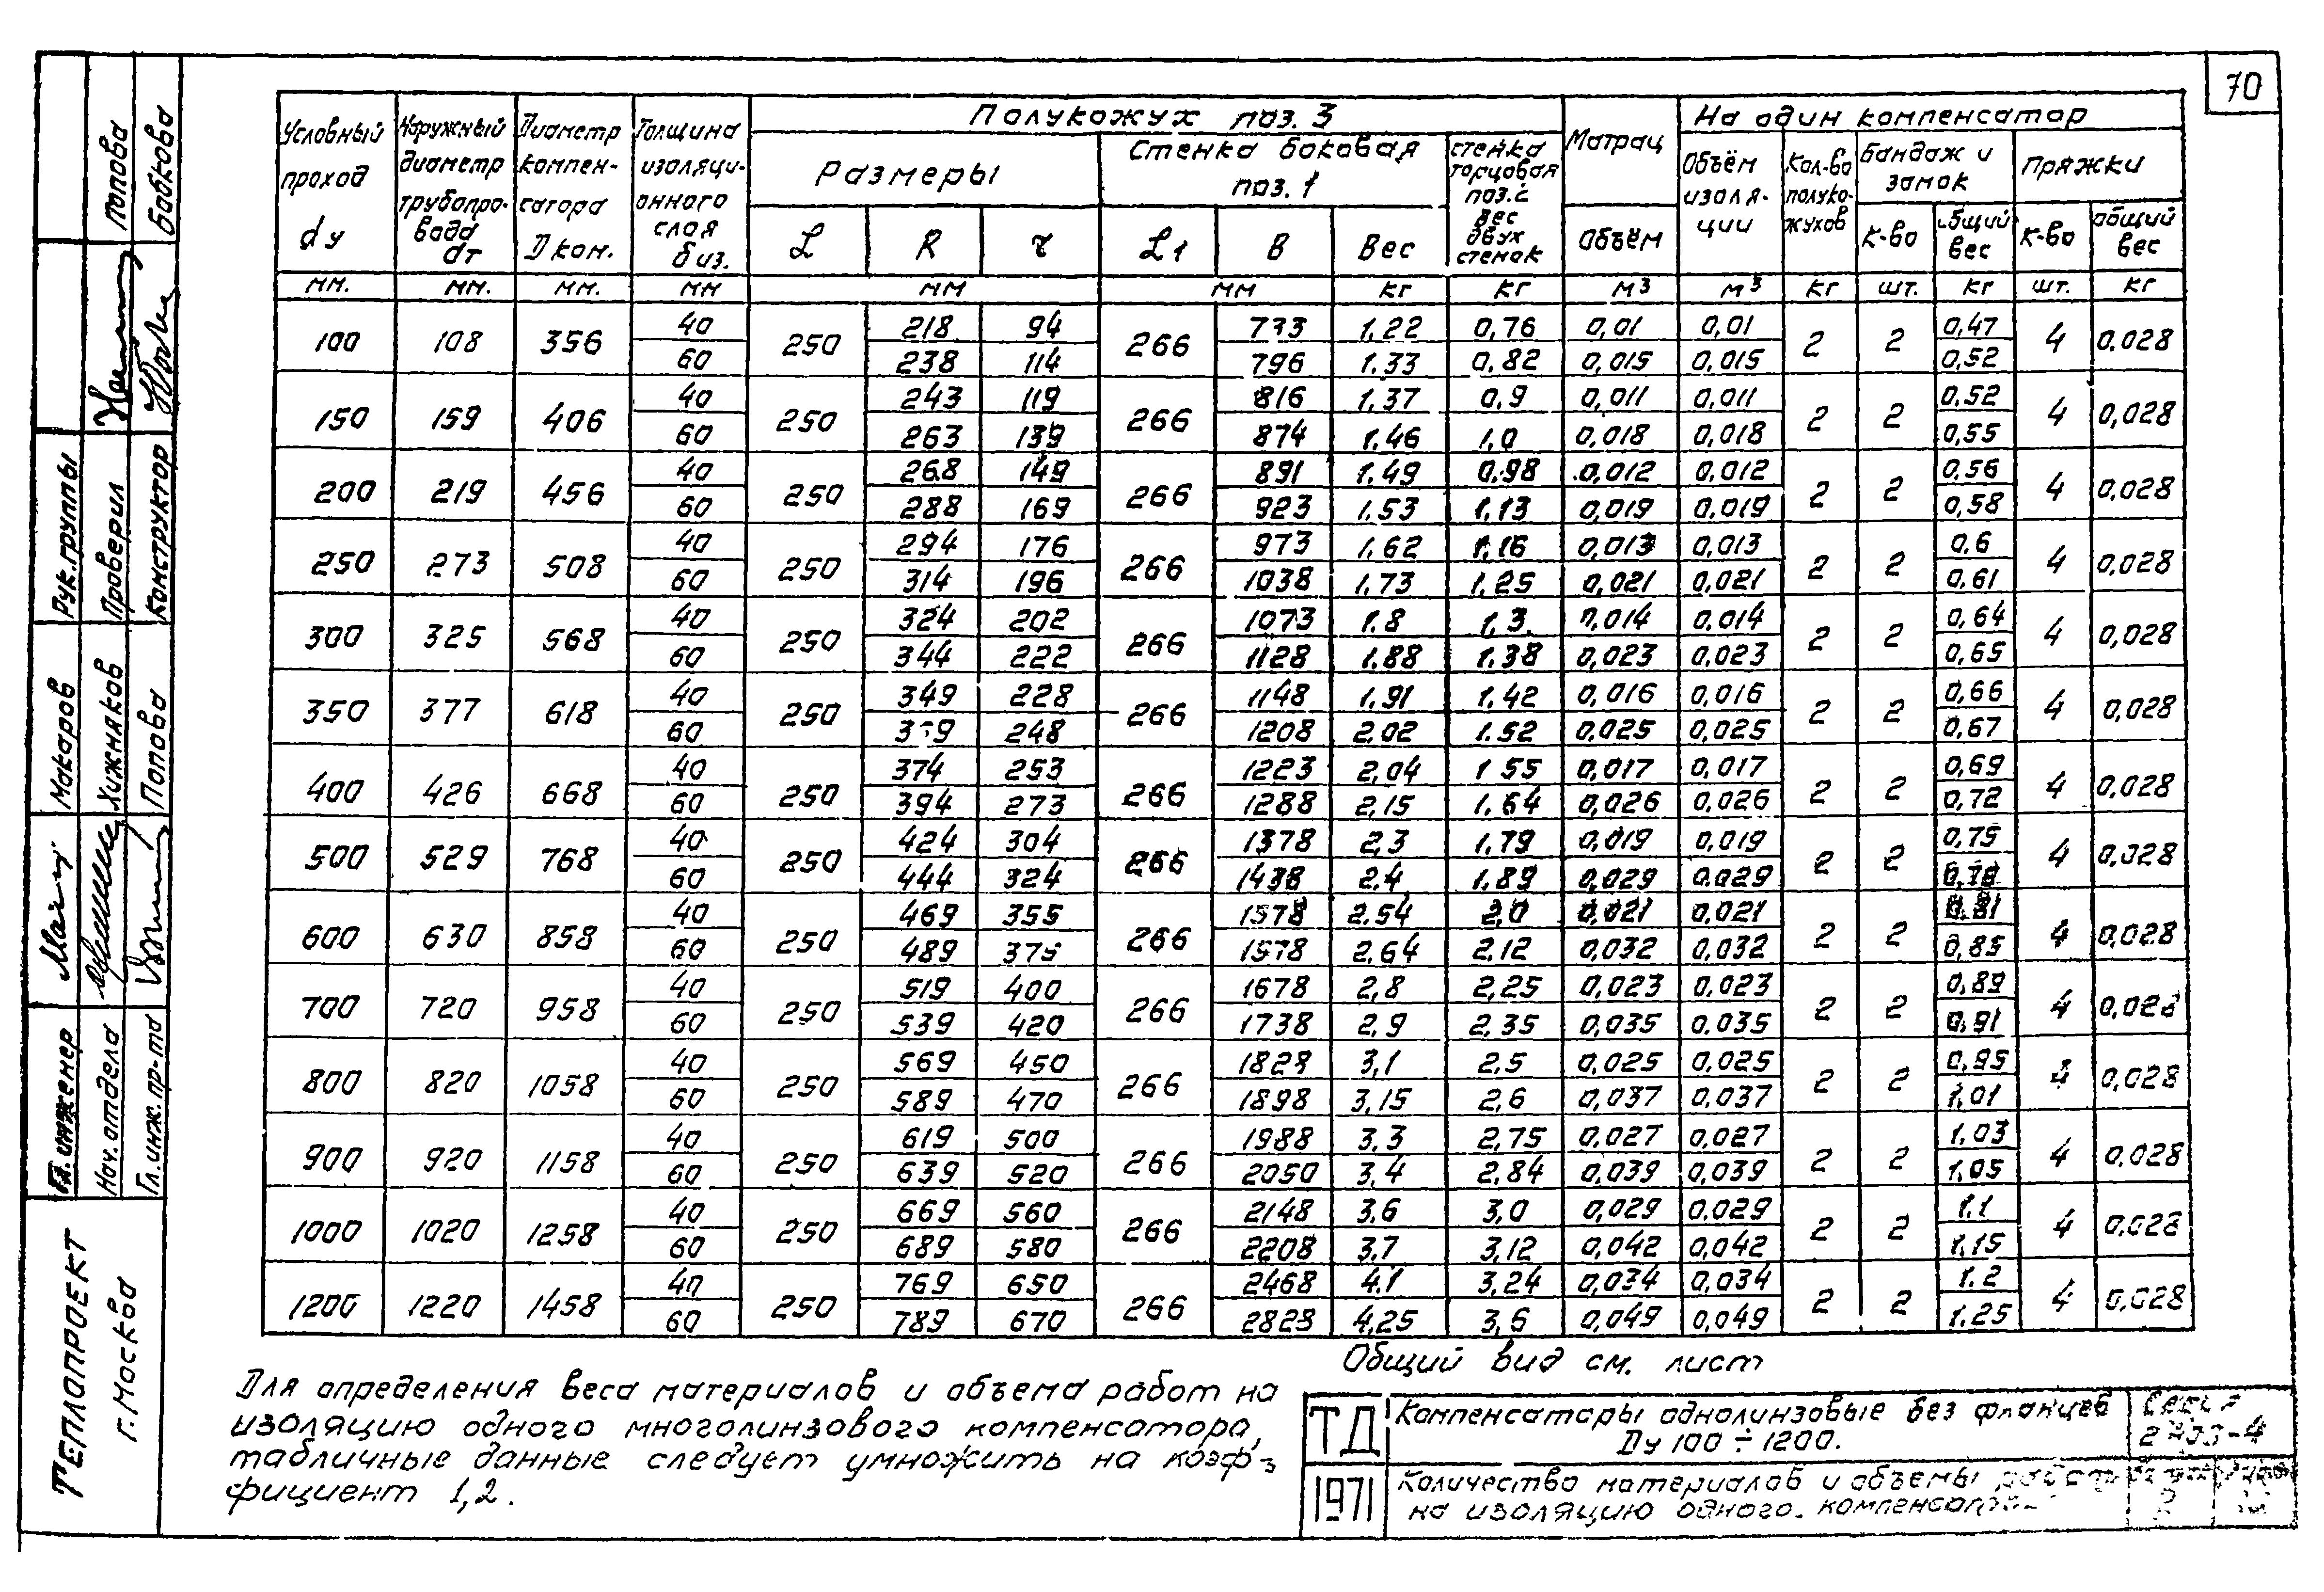 70
Условный проход dу
Наружный диаметр трубопровода dт
Диаметр компенсатора D ком.
Толщина изоляционного слоя δ из.
Полукожух поз. 3
Размеры
L R r
Стенка боковая поз. 1
L1 В Вес
стенка торцовая поз. 2 вес двух стенок
Матрац
Объём
На один компенсатор
Объём изоляции
Кол-во полукожухов
Бандаж и замок
к-во общий вес
Пряжки
к-во общий вес
мм. мм. мм. мм мм мм кг кг м³ м³ кг шт. кг шт. кг
100 108 356 40 250 218 94 266 733 1,22 0,76 0,01 0,01 2 2 0,47 4 0,028
60 238 114 796 1.33 0,82 0,015 0,015 0,52
150 159 406 40 250 243 119 266 816 1,37 0,9 0,011 0,011 2 2 0,52 4 0,028
60 263 139 874 1.46 1,0 0,018 0,018 0,55
200 219 456 40 250 268 149 266 891 1.49 0.98 0,012 0,012 2 2 0,56 4 0,028
60 288 169 923 1.53 1,13 0,019 0,019 0,58
250 273 508 40 250 294 176 266 973 1,62 1,16 0,013 0,013 2 2 0,6 4 0,028
60 314 196 1038 1,73 1,25 0,021 0,021 0,61
300 325 568 40 250 324 202 266 1073 1.8 1,3 0,014 0,014 2 2 0,64 4 0,028
60 344 222 1128 1.88 1.38 0,023 0,023 0,65
350 377 618 40 250 349 228 266 1148 1,91 1,42 0,016 0,016 2 2 0,66 4 0,028
60 248 1208 2,02 1.52 0,025 0,025 0,67
400 426 668 40 250 374 253 266 1223 2,04 1 55 0,017 0,017 2 2 0,69 4 0,028
60 394 273 1288 2,15 1,64 0,026 0,026 0,72
500 529 768 40 250 424 304 266 1378 2,3 1,79 0,019 0,019 2 2 0,75 4 0,028
60 444 324 1438 2.4 1,89 0,029 0.029 0,78
600 630 858 40 250 469 355 266 2.54 2,0 0,021 0,021 2 2 0,81 4 0,028
60 489 375 1578 2,64 2,12 0,032 0,032 0,85
700 720 958 40 250 519 400 266 1678 2,8 2,25 0,023 0,023 2 2 0,89 4 0,028
60 539 420 1738 2,9 2,35 0,035 0,035 0,91
800 820 1058 40 250 569 450 266 1828 3,1 2,5 0,025 0,025 2 2 0,95 4 0,028
60 589 470 1898 3,15 2,6 0,037 0,037 1,01
900 920 1158 40 250 619 500 266 1988 3.3 2,75 0,027 0,027 2 2 1,03 4 0,028
60 639 520 2050 3,4 2,84 0,039 0,039 1,05
1000 1020 1258 40 250 669 560 266 2148 3,6 3,0 0,029 0,029 2 2 1.1 4 0,028
60 689 580 2208 3,7 3,12 0,042 0,042 1,15
1200 1220 1458 40 250 769 650 266 2468 4.1 3,24 0,034 0,034 2 2 1.2 4 0,028
60 789 670 2828 4,25 3,6 0,049 0,049 1.25
Общий вид см. лист
Для определения веса материалов и объема работ на
изоляцию одного многолинзового компенсатора,
табличные данные следует умножить на коэф-
фициент 1,2.
ТД
1971
Компенсаторы однолинзовые без фланцев
Ду 100 ÷ 1200.
Количество материалов и объемы работ
на изоляцию одного компенсатора
Серия
ТЕПЛОПРОЕКТ
г. Москва
Гл. инженер Макаров
Нач. отдела Хижняков
Гл. инж. пр-та Попова
Рук. группы
Проверил Попова
Конструктор Бобкова